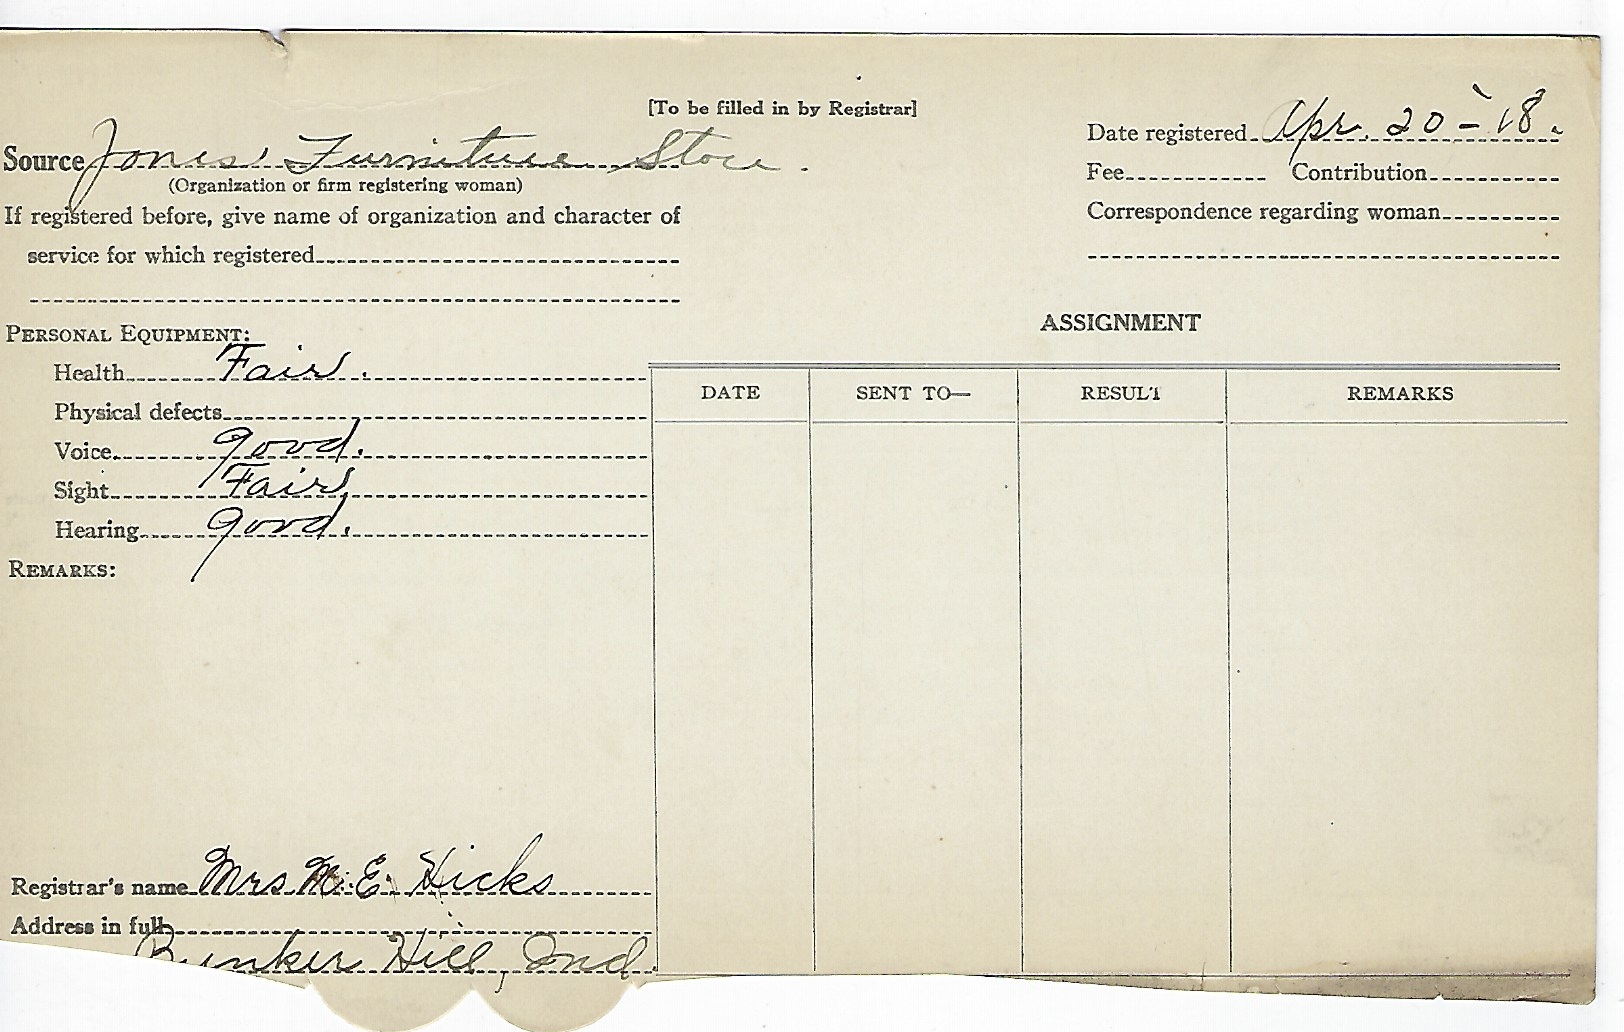 [To be filled in by Registrar]
Source Jones' Furniture Store.
(Organization or firm registering woman)
If registered before, give name of organization and character of
service for which registered
Date registered Apr. 20-18.
Fee Contribution
Correspondence regarding woman
PERSONAL EQUIPMENT:
Health Fair.
Physical defects
Voice good.
Sight Fair
Hearing good.
REMARKS:
Registrar's name Mrs M. E. Hicks
Address in full
Bunker Hill, Ind.
ASSIGNMENT
DATE SENT TO— RESULT REMARKS